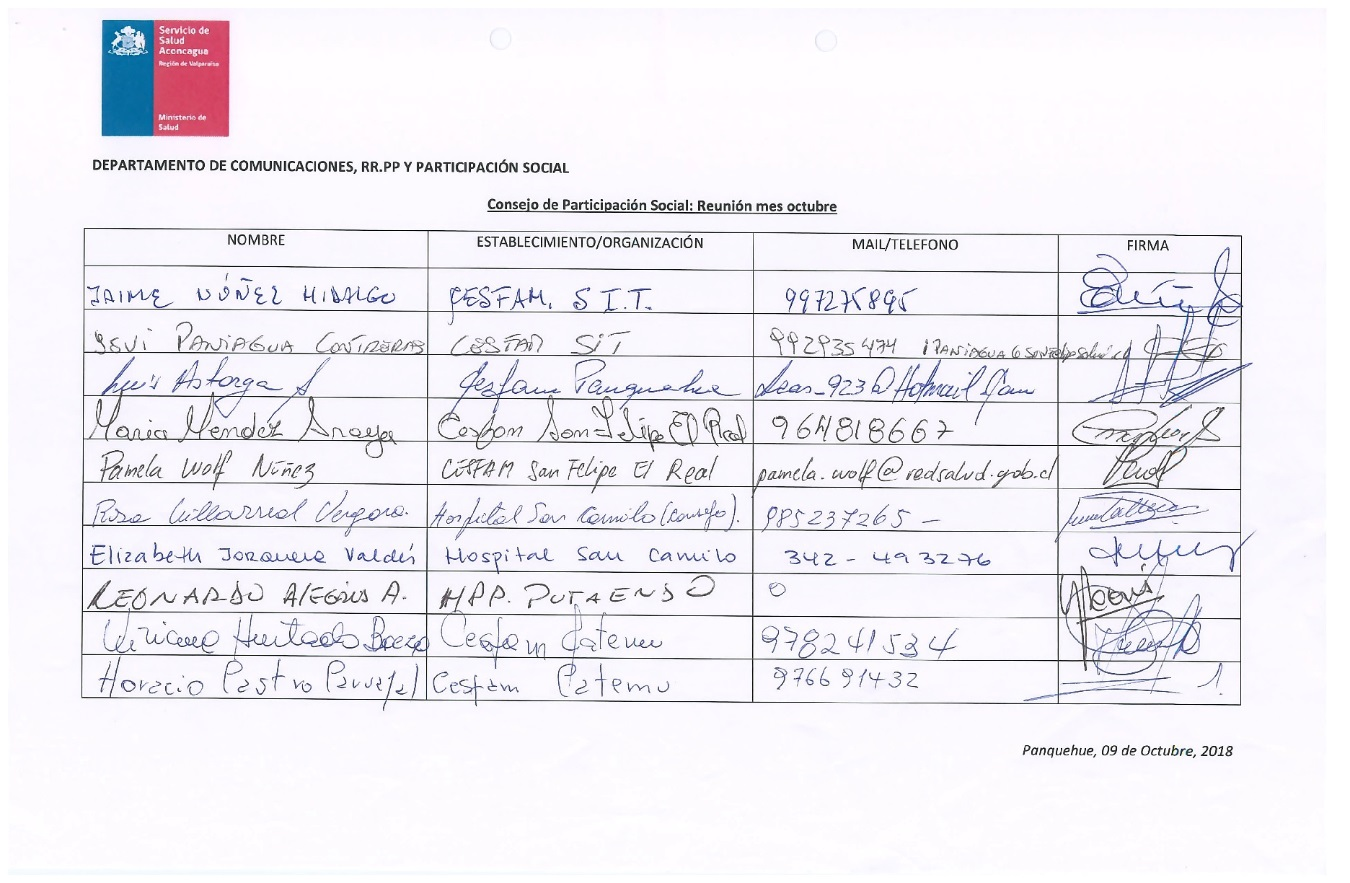 Servicio de
Salud
Aconcagua
Región de Valparaíso
Ministerio de
Salud
DEPARTAMENTO DE COMUNICACIONES, RR.PP Y PARTICIPACIÓN SOCIAL
Consejo de Participación Social: Reunión mes octubre
NOMBRE ESTABLECIMIENTO/ORGANIZACIÓN MAIL/TELEFONO FIRMA
JAIME NÚÑEZ HIDALGO CESFAM. S I.T. 997275895
PANIAGUA CONTRERAS CESFAM SIT 992935474
Luis Astorga Cesfam Panquehue
Maria Mendez Araya San Felipe El Real 964818667
Pamela Wolf Núñez CESFAM San Felipe El Real pamela.wolf@redsalud.gob.cl
Rosa Villarreal Vergara. Hospital San Camilo (consejo). 985237265 –
Elizabeth Jorquera Valdés Hospital San Camilo 342 - 493276
LEONARDO A. HPP. PUTAENDO 0
Hurtado Baeza Cesfam Catemu 978241534
Horacio Castro Cesfam Catemu 976691432
Panquehue, 09 de Octubre, 2018